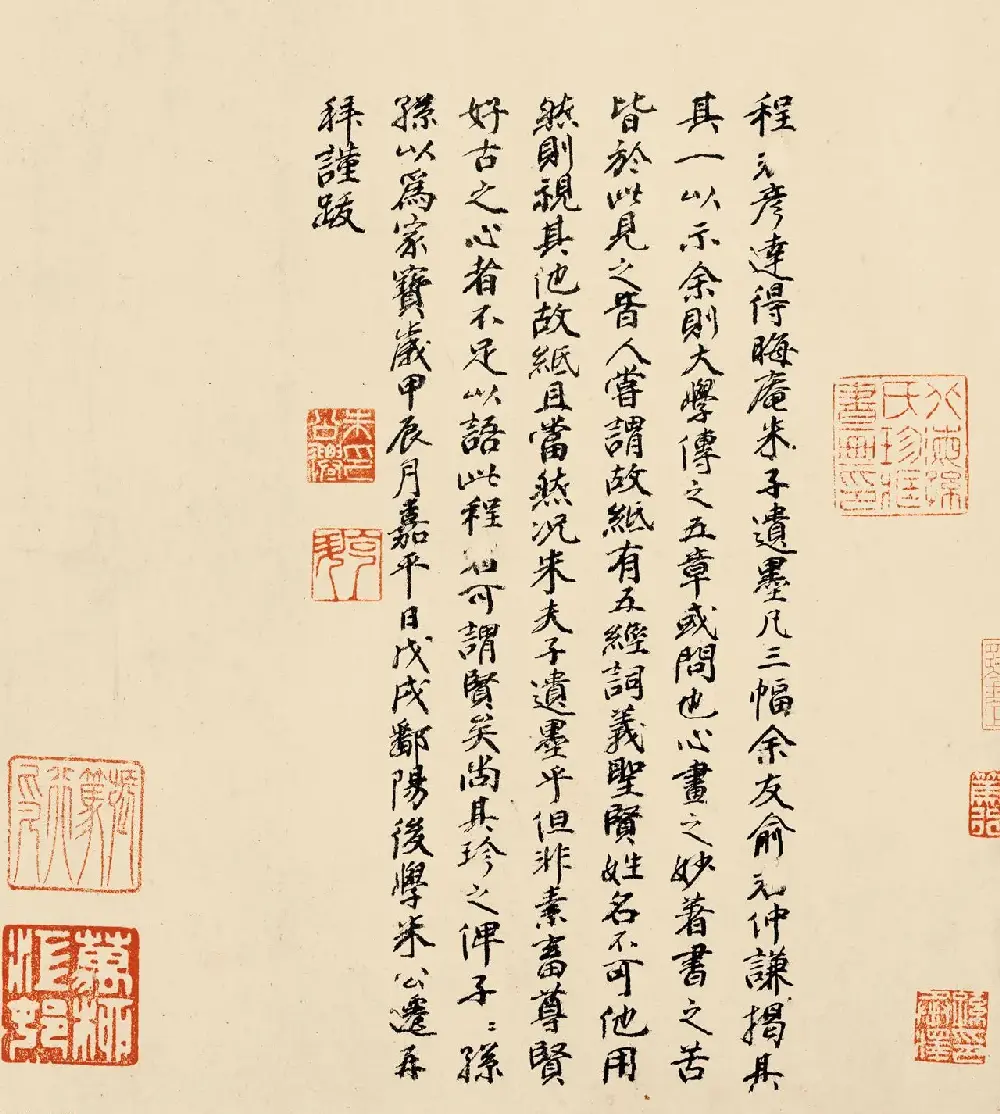 程元彥達得晦庵朱子遺墨凡三幅余友俞元仲謙揭其
其一以示余則大學傳之五章或問也心畫之妙著書之苦
皆於此見之昔人嘗謂故紙有五經詞義聖賢姓名不可他用
然則視其他故紙且當然況朱夫子遺墨乎但非素畜尊賢
好古之心者不足以語此程君可謂賢矣尚其珍之俾子〻孫
孫以為家寶歲甲辰月嘉平日戊戌鄱陽後學朱公遷再
拜謹跋